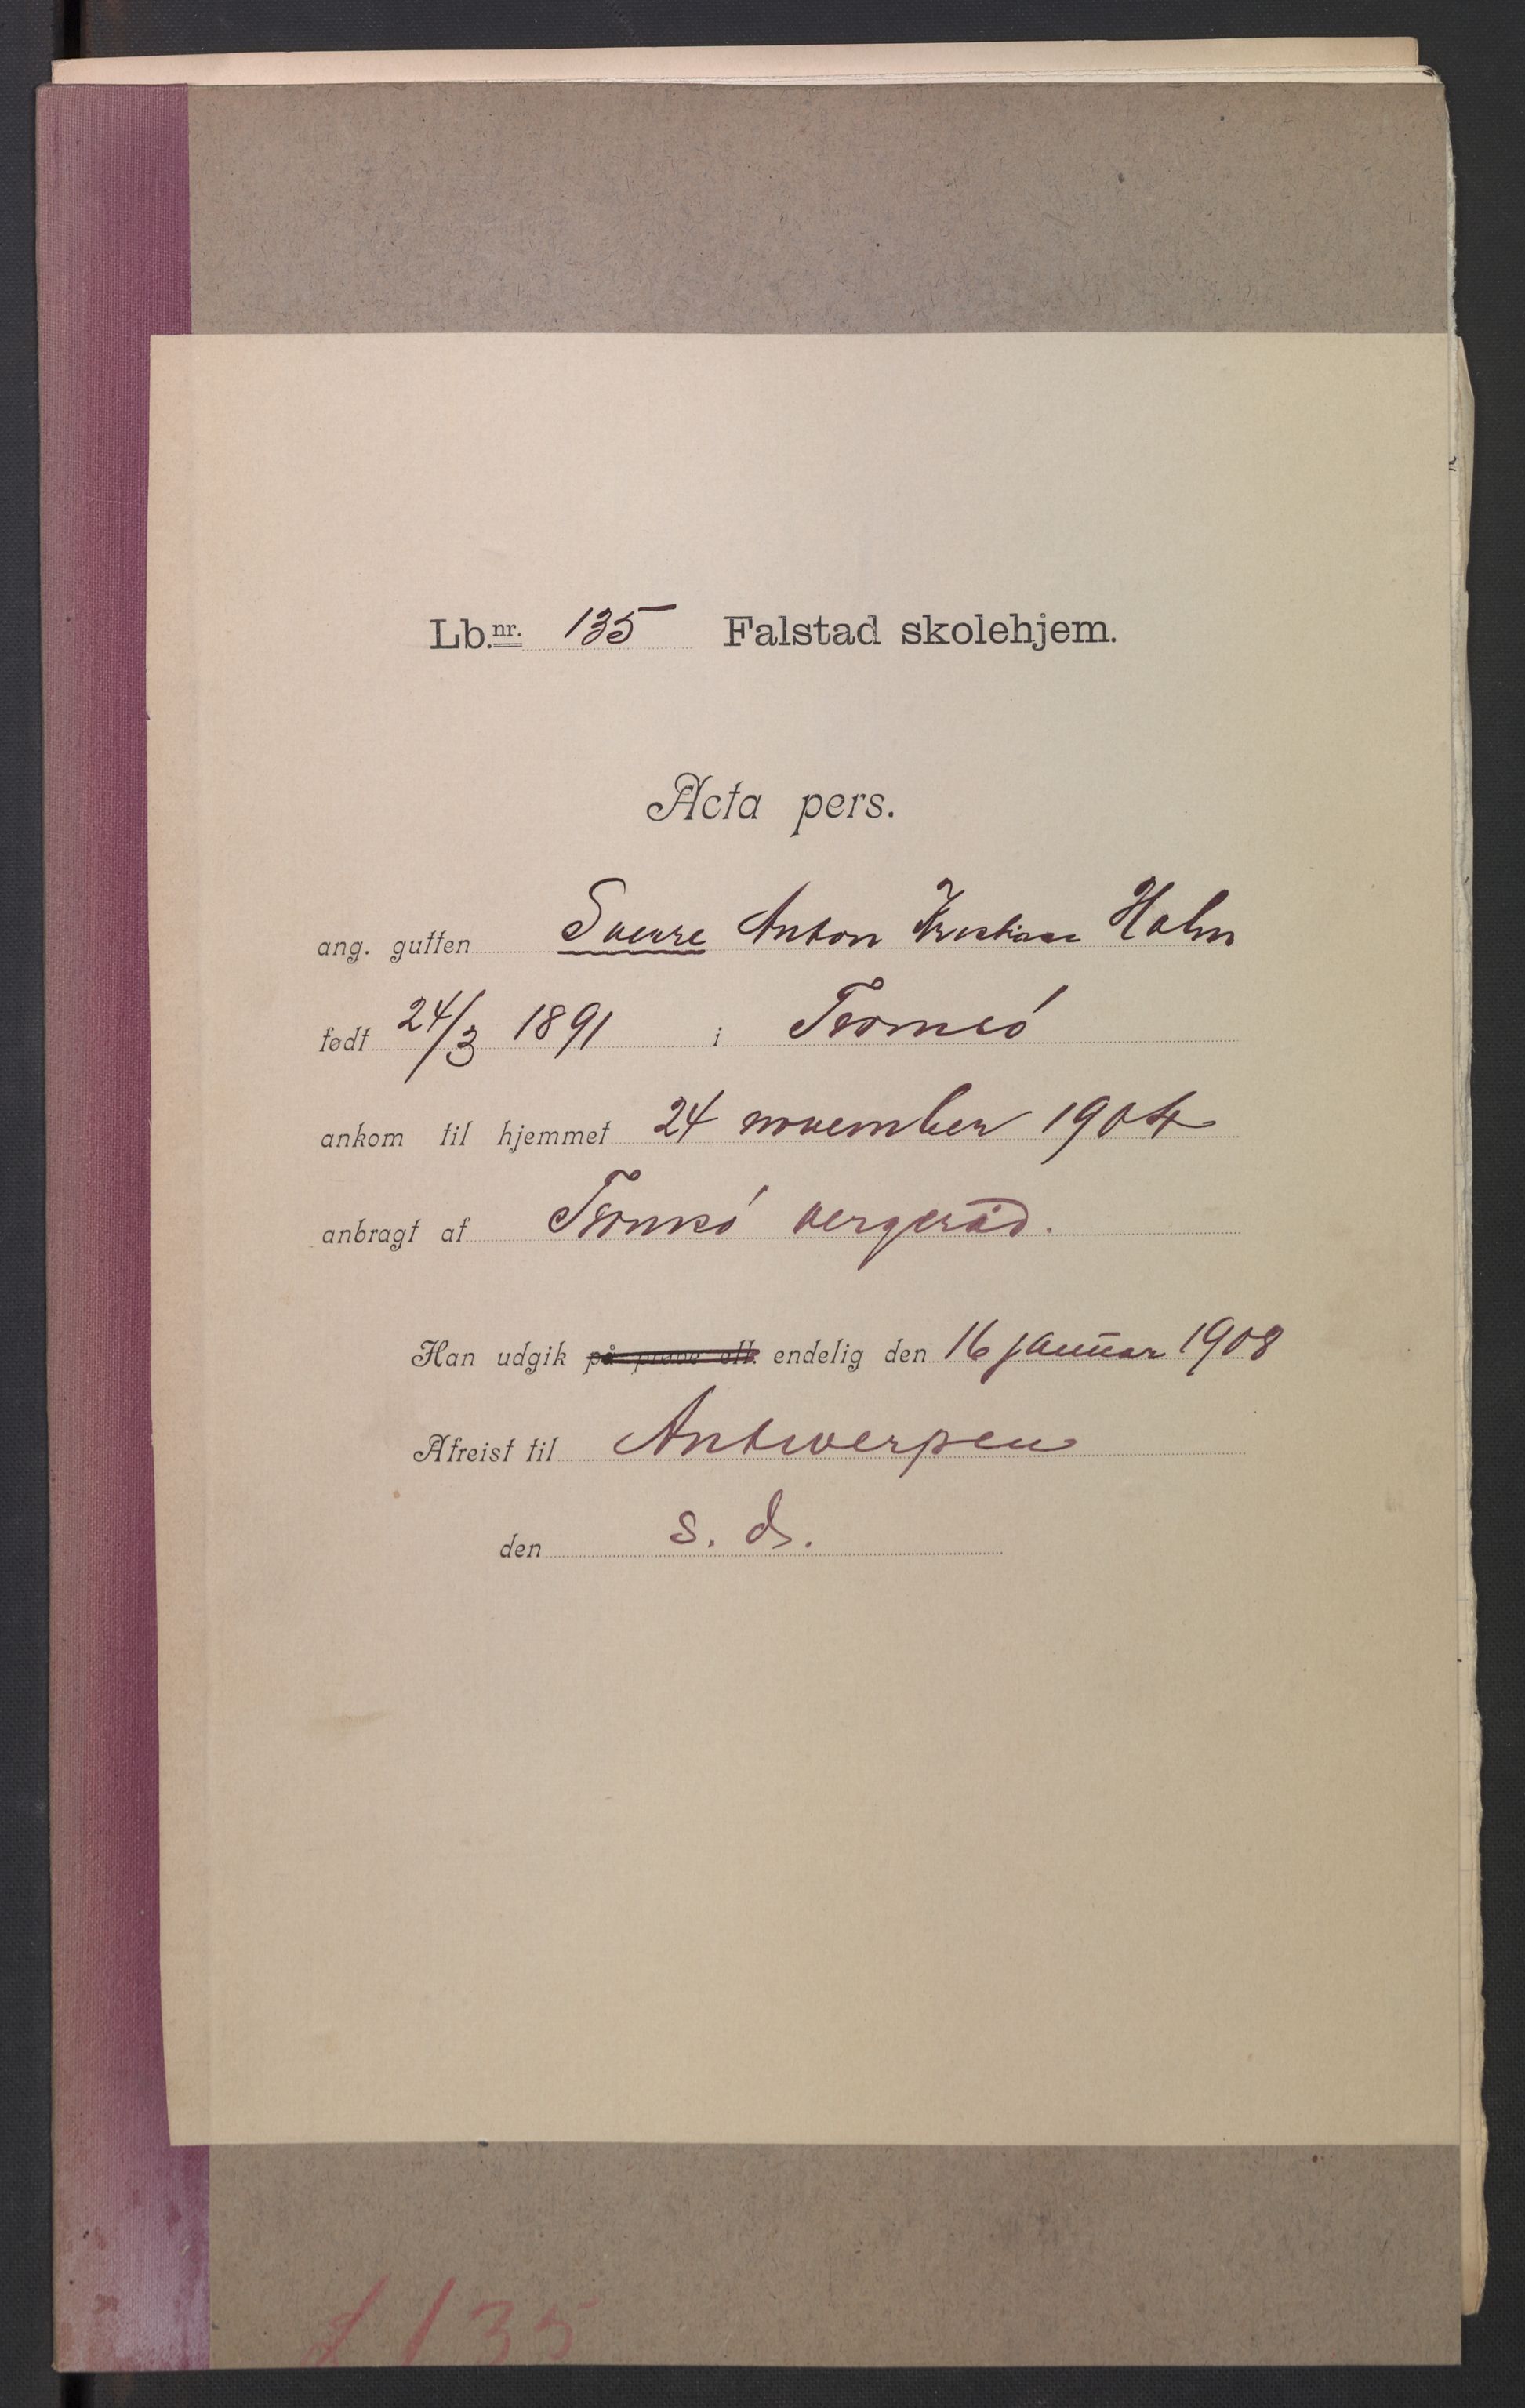 Lb.nr. 135 Falstad skolehjem.
Acta pers.
ang. gutten Sverre Anton Kristian Holm
født 24/3 1891 i Tromsó
ankom til hjemmet 24 november 1904
anbragt af Tromsó vergeråd.
Han udgik på prøve elt. endelig den 16 januar 1908
Afreist til Antwerpen
den s. d.
L 135